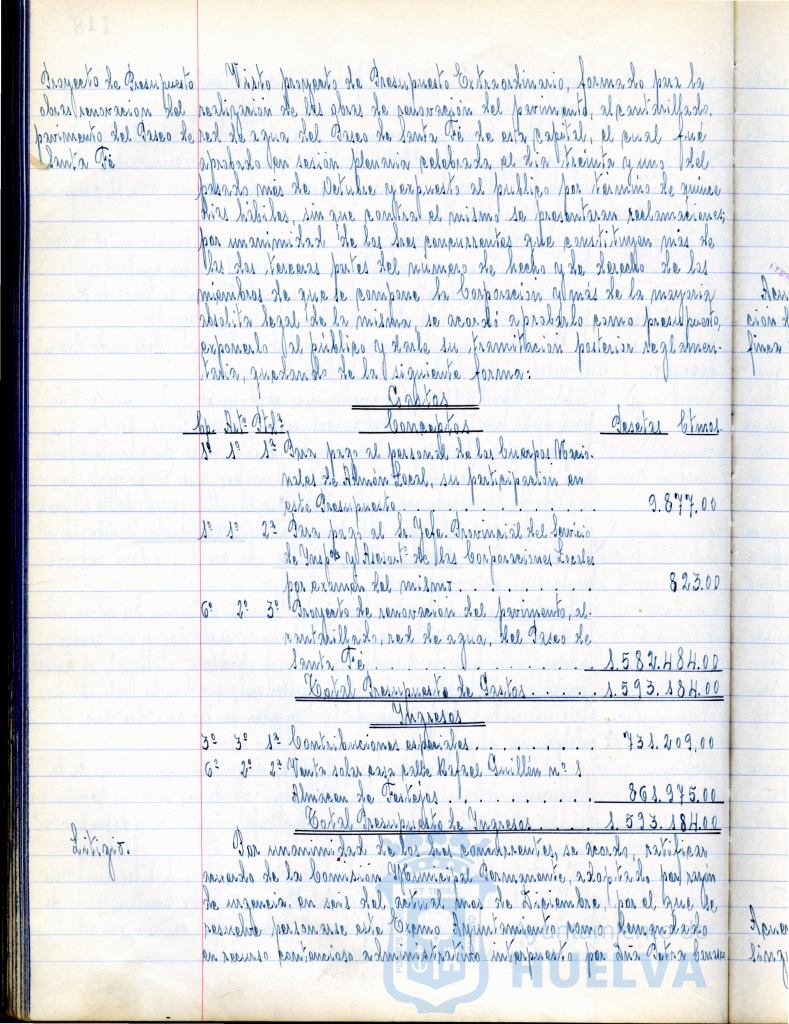 Proyecto de Presupuesto
obras renovacion del
pavimento del Paseo de
Santa Fé
Visto proyecto de Presupuesto Extraordinario, formado para la
realización de las obras de renovación del pavimento, alcantarillado,
red de agua del Paseo de Santa Fé de esta capital, el cual fué
aprobado en sesión plenaria celebrada el dia treinta y uno del
pasado mes de Octubre y expuesto al publico por término de quince
dias hábiles, sin que contra el mismo se presentaran reclamaciones;
por unanimidad de los Sres concurrentes que constituyen más de
las dos terceras partes del número de hecho y de derecho de los
miembros de que se compone la Corporación y más de la mayoria
absoluta legal de la misma, se acordó aprobarlo como presupuesto,
exponerlo al público y darle su tramitación posterior reglamen-
taria, quedando de la siguiente forma:
Gastos
Cp. Artº Ptdª Conceptos Pesetas Ctmos.
1º 1º 1ª Para pago al personal de los Cuerpos Nacio-
nales de Admón Local, su participación en
este Presupuesto 9.877.00
1º 1º 2ª Para pago al Sr. Jefe Provincial del Servicio
de Inspº y Asesorº de las Corporaciones Locales
por examen del mismo 823.00
6º 2º 3º Proyecto de renovación del pavimento, al-
cantarillado, red de agua, del Paseo de
Santa Fé 1.582.484.00
Total Presupuesto de Gastos 1.593.184.00
Ingresos
3º 3º 1ª Contribuciones especiales 731.209,00
6º 2º 2ª Venta solar casa calle Rafael Guillén nº 1
Almacen de Festejos 861.975.00
Total Presupuesto de Ingresos 1.593.184.00
Litigio.
Por unanimidad de los Sres concurrentes, se acordo, ratificar
acuerdo de la Comisión Municipal Permanente, adoptado por razón
de urgencia en seis del actual mes de Diciembre, por el que se
resuelve personarse este Excmo Ayuntamiento como demandado
en recurso contencioso administrativo interpuesto por Dña Petra
ayuntamiento de
HUELVA